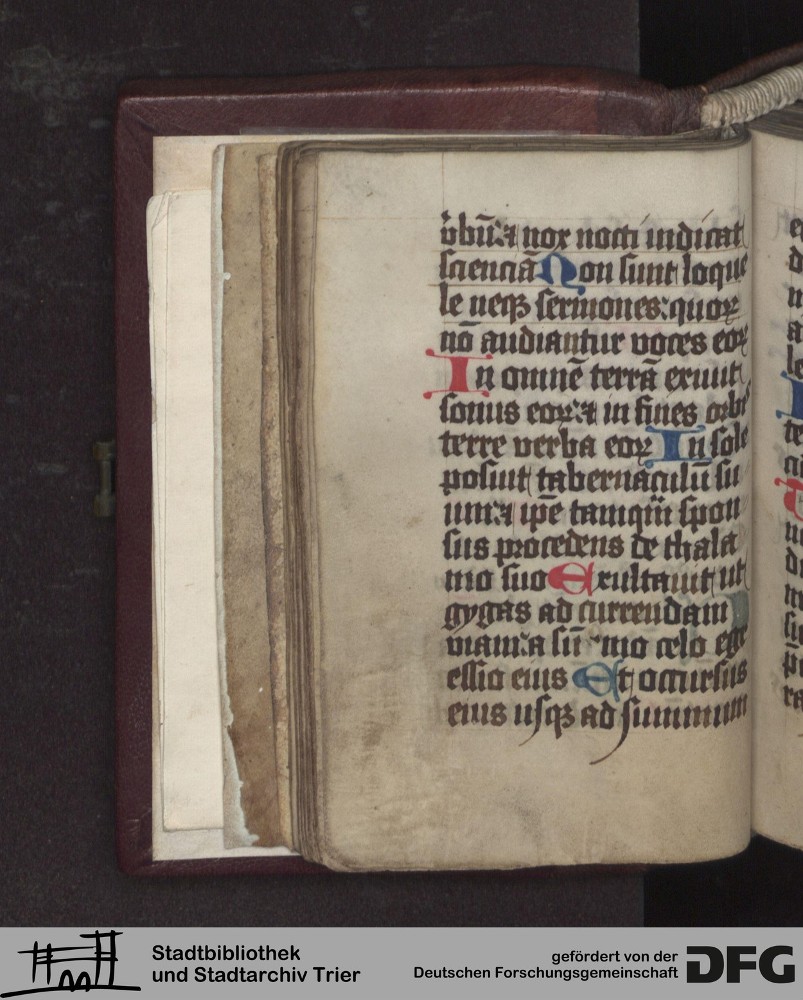 v̄bū: ⁊ nox nocti indicat
scienciā Non sunt loque
le neqꝫ sermones: quoꝝ
nō audiantur voces eoꝝ
In omnē terrā exiuit
sonus eoꝝ: ⁊ in fines orbis
terre verba eoꝝ In sole
posuit tabernaculū su
um: ⁊ ip̄e tamqͫ spon
sus procedens de thala
mo suo Exultauit ut
gygas ad currendam
viam: a sū mo celo egr
essio eius Et occursus
eius usqꝫ ad summum
Stadtbibliothek
und Stadtarchiv Trier
gefördert von der
Deutschen Forschungsgemeinschaft
DFG